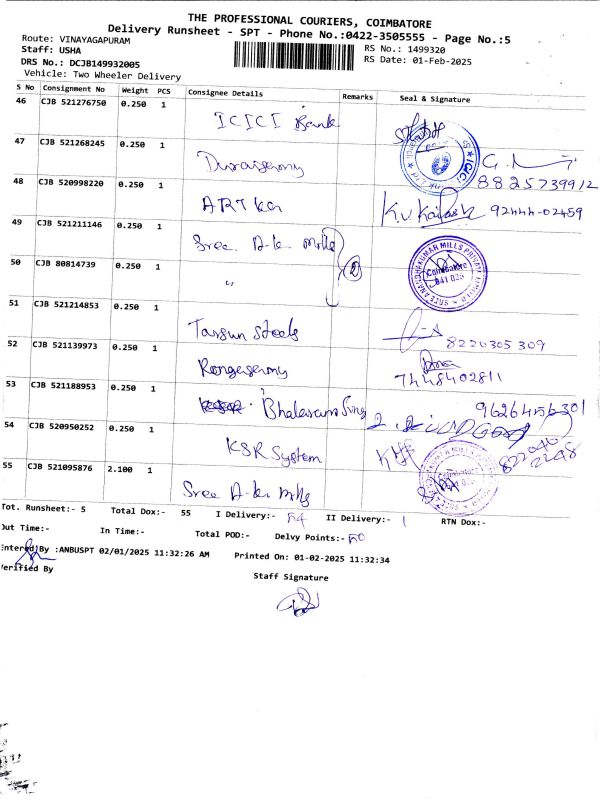 THE PROFESSIONAL COURIERS, COIMBATORE
Delivery Runsheet - SPT - Phone No.:0422-3505555 - Page No.:5
Route: VINAYAGAPURAM RS No.: 1499320
Staff: USHA RS Date: 01-Feb-2025
DRS No.: DCJB149932005
Vehicle: Two Wheeler Delivery
S No Consignment No Weight PCS Consignee Details Remarks Seal & Signature
46 CJB 521276750 0.250 1 ICICI Bank
47 CJB 521268245 0.250 1 Duraisamy 8825739912
48 CJB 520998220 0.250 1 K.V. Kailash 92444-02459
49 CJB 521211146 0.250 1 Sree A-ker Mills
50 CJB 80814739 0.250 1 " 2 Coimbatore
51 CJB 521214853 0.250 1 Tarsun Steels 8220305309
52 CJB 521139973 0.250 1 Rangasamy 7448402811
53 CJB 521188953 0.250 1 Bhalaram Sing 9626456301
54 CJB 520950252 0.250 1 KSR System
55 CJB 521095876 2.100 1 Sree A-ker Mills
Tot. Runsheet:- 5 Total Dox:- 55 I Delivery:- 54 II Delivery:- 1 RTN Dox:-
Out Time:- In Time:- Total POD:- Delvy Points:- 50
Entered By :ANBUSPT 02/01/2025 11:32:26 AM Printed On: 01-02-2025 11:32:34
Verified By
Staff Signature